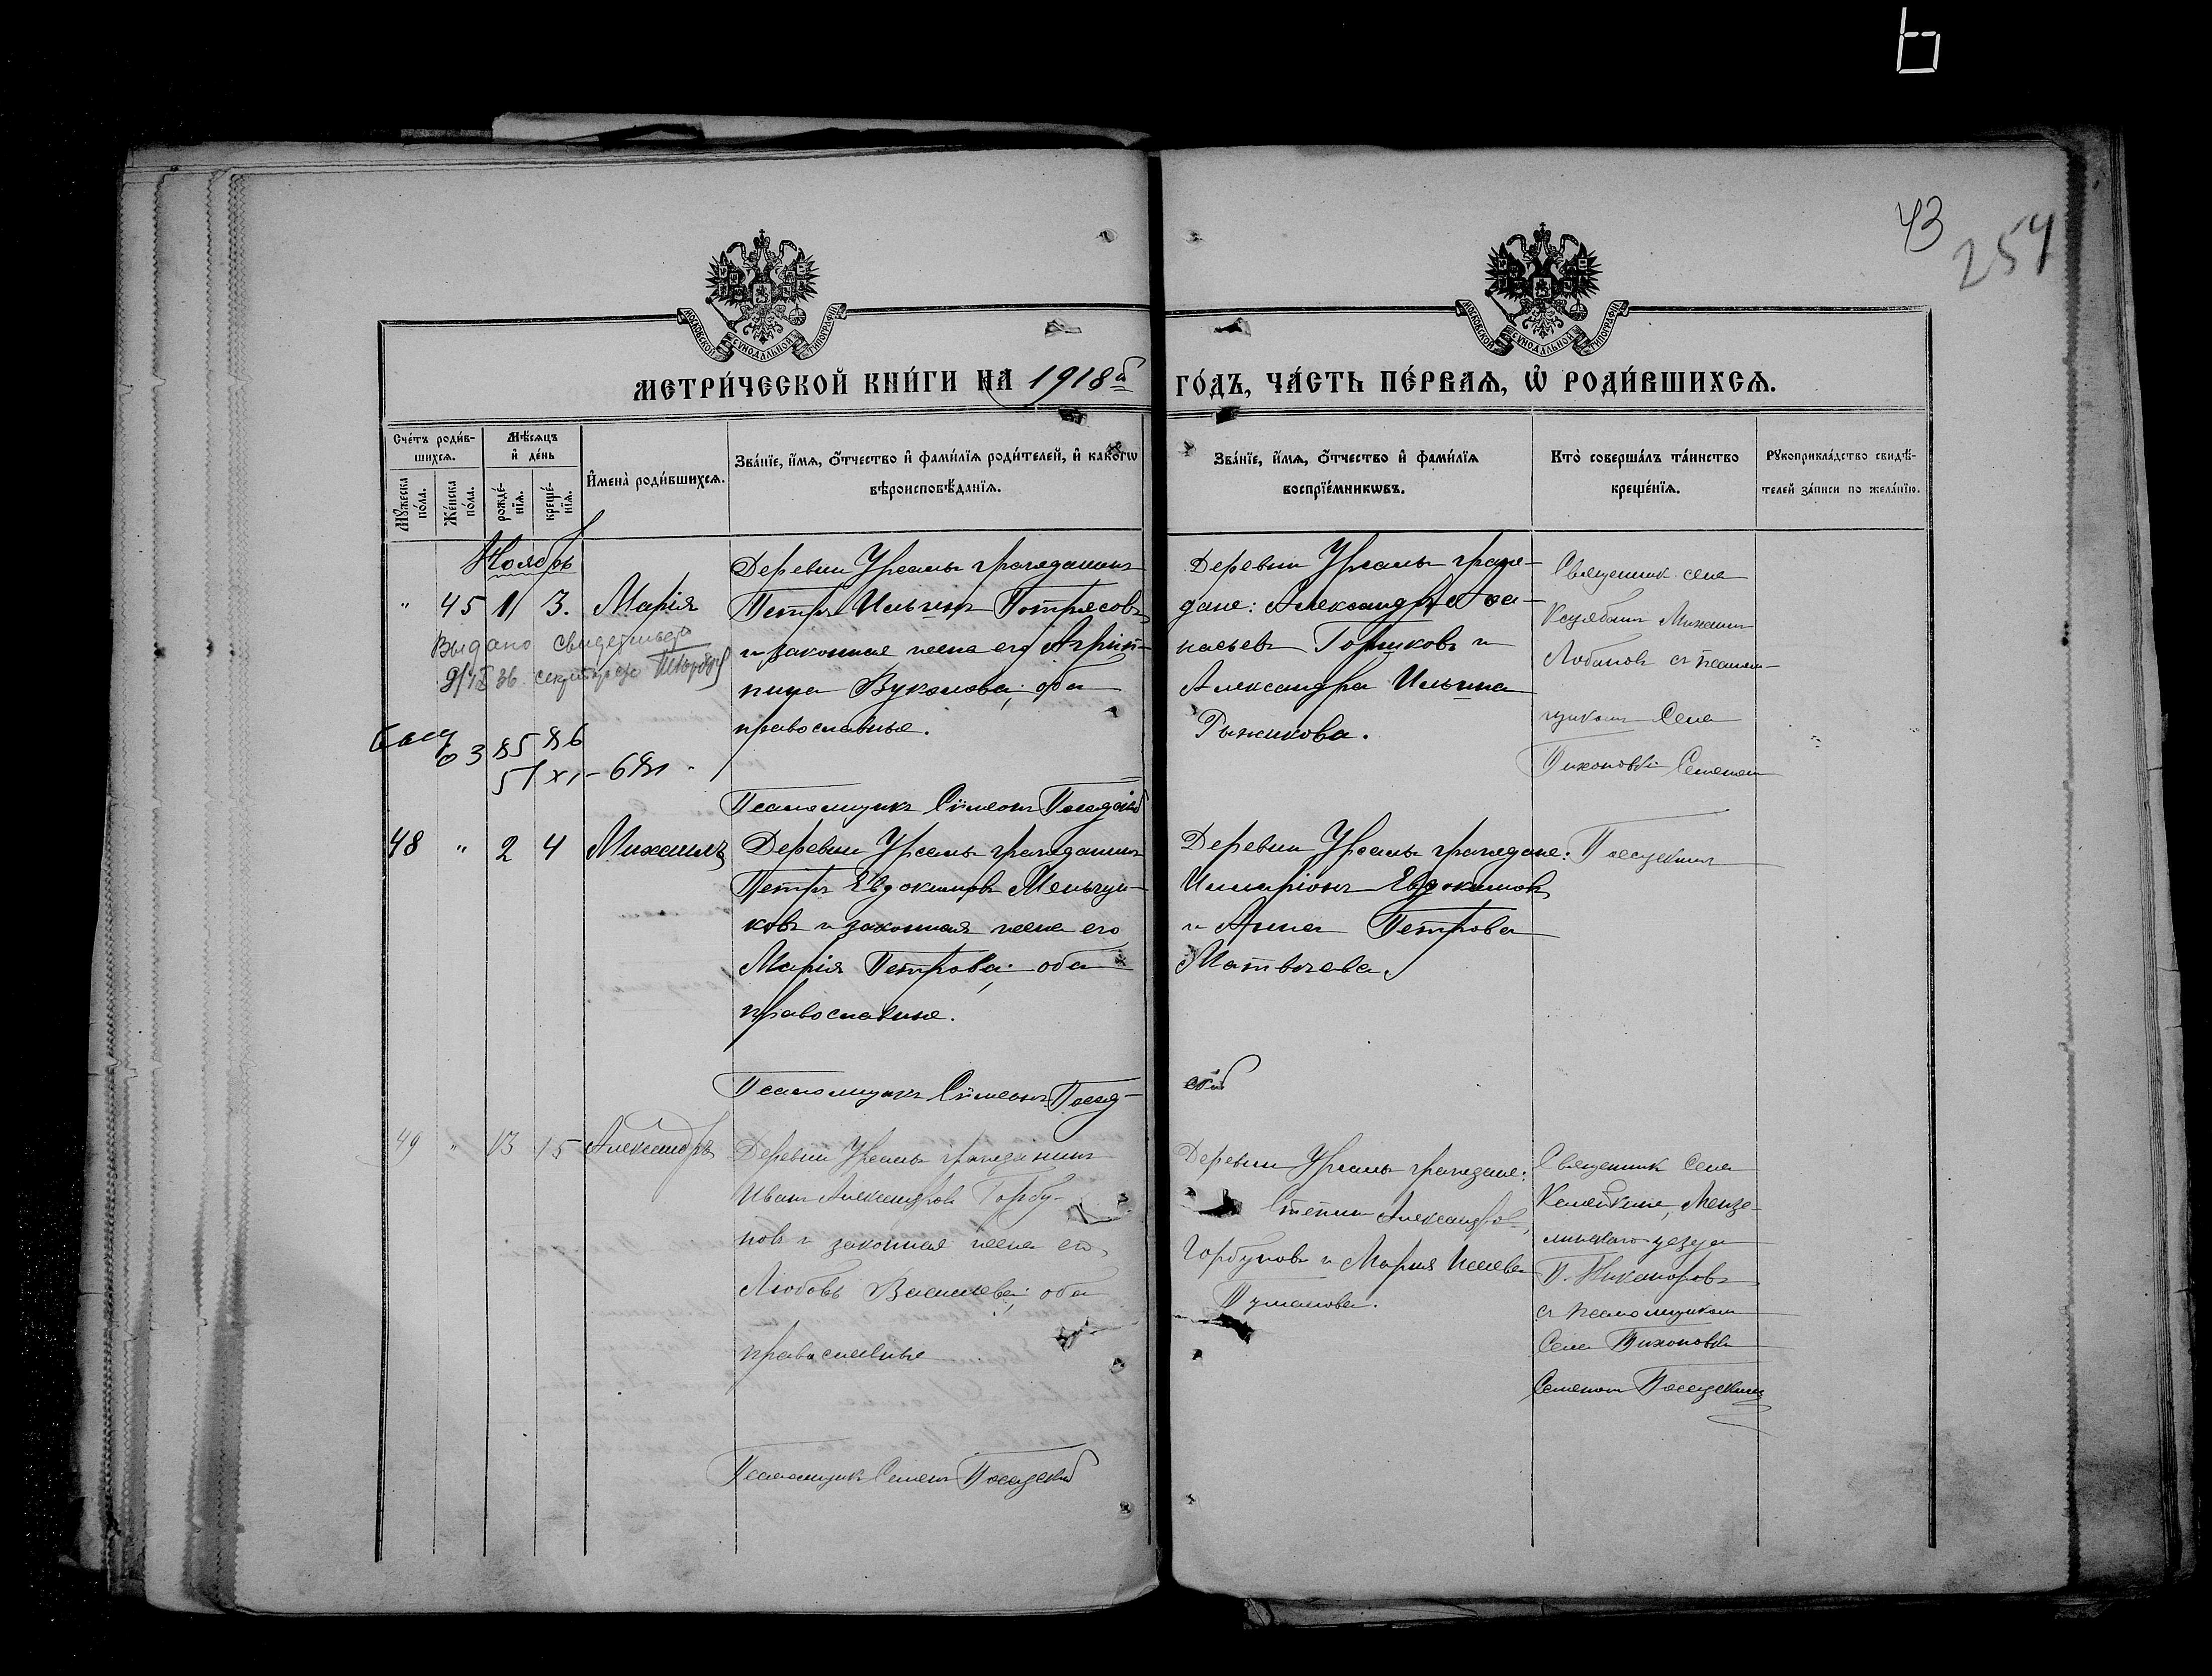 43
254
МОСКОВСКОЙ СѴНОДАЛЬНОЙ ТИПОГРАФІИ
МОСКОВСКОЙ СѴНОДАЛЬНОЙ ТИПОГРАФІИ
МЕТРИ́ЧЕСКОЙ КНИ́ГИ НА 1918й ГО́ДЪ, ЧА́СТЬ ПЕ́РВАѦ, Ѡ РОДИ́ВШИХСѦ.
Сче́тъ роди́в-
шихсѧ.
Мѣ́сѧцъ
и҆ де́нь
Мꙋ́жеска по́ла.
Же́нска по́ла.
рожде́-
нїѧ.
креще́-
нїѧ.
И҆мена̀ роди́вшихсѧ.
Зва́нїе, и҆́мѧ, ѻ҆́тчество и҆ фами́лїѧ роди́телей, и҆ како́гѡ
вѣроисповѣ́данїѧ.
Зва́нїе, и҆́мѧ, ѻ҆́тчество и҆ фами́лїѧ
воспрїе́мникѡвъ.
Кто̀ соверша́лъ та́инство
креще́нїѧ.
Рꙋкоприкла́дство свидѣ́-
телей за́писи по жела́нїю.
Ноябрь
" 45 1 3. Марія
Деревни Урсалы гражданинъ
Петръ Ильинъ Потрясовъ
и законная жена его Агрип-
пина Вуколова; оба
православные.
Деревни Урсалы граж-
дане: Александръ Афа-
насьевъ Горшковъ и
Александра Ильина
Рыжикова.
Священник села
Михаил
Лобановъ съ псалом-
щикомъ Села
Тихоновки Семеном
Посадскимъ
Выдано свидетельство
Псаломщикъ Сѵмеонъ Посадскій
48 " 2 4 Михаилъ
Деревни Урсалы гражданинъ
Петръ Евдокимовъ Меньчу-
ковъ и законная жена его
Марія Петрова; оба
православные.
Деревни Урсалы граждане:
Илларіонъ Евдокимовъ
и Анна Петрова
Матвѣева.
Псаломщикъ Сѵмеонъ Посад-
скій
49 " 13 15 Александръ
Деревни Урсалы гражданинъ
Иванъ Александровъ Горбу-
новъ и законная жена его
Любовь Васильева; оба
православные
Деревни Урсалы граждане:
Степанъ Александровъ
Горбуновъ и Мария
Туманова.
Священник Села
Мензе-
линскаго уезда
П. Никаноровъ
съ псаломщиком
Села Тихоновки
Семеномъ Посадскимъ
Псаломщикъ Семенъ Посадский